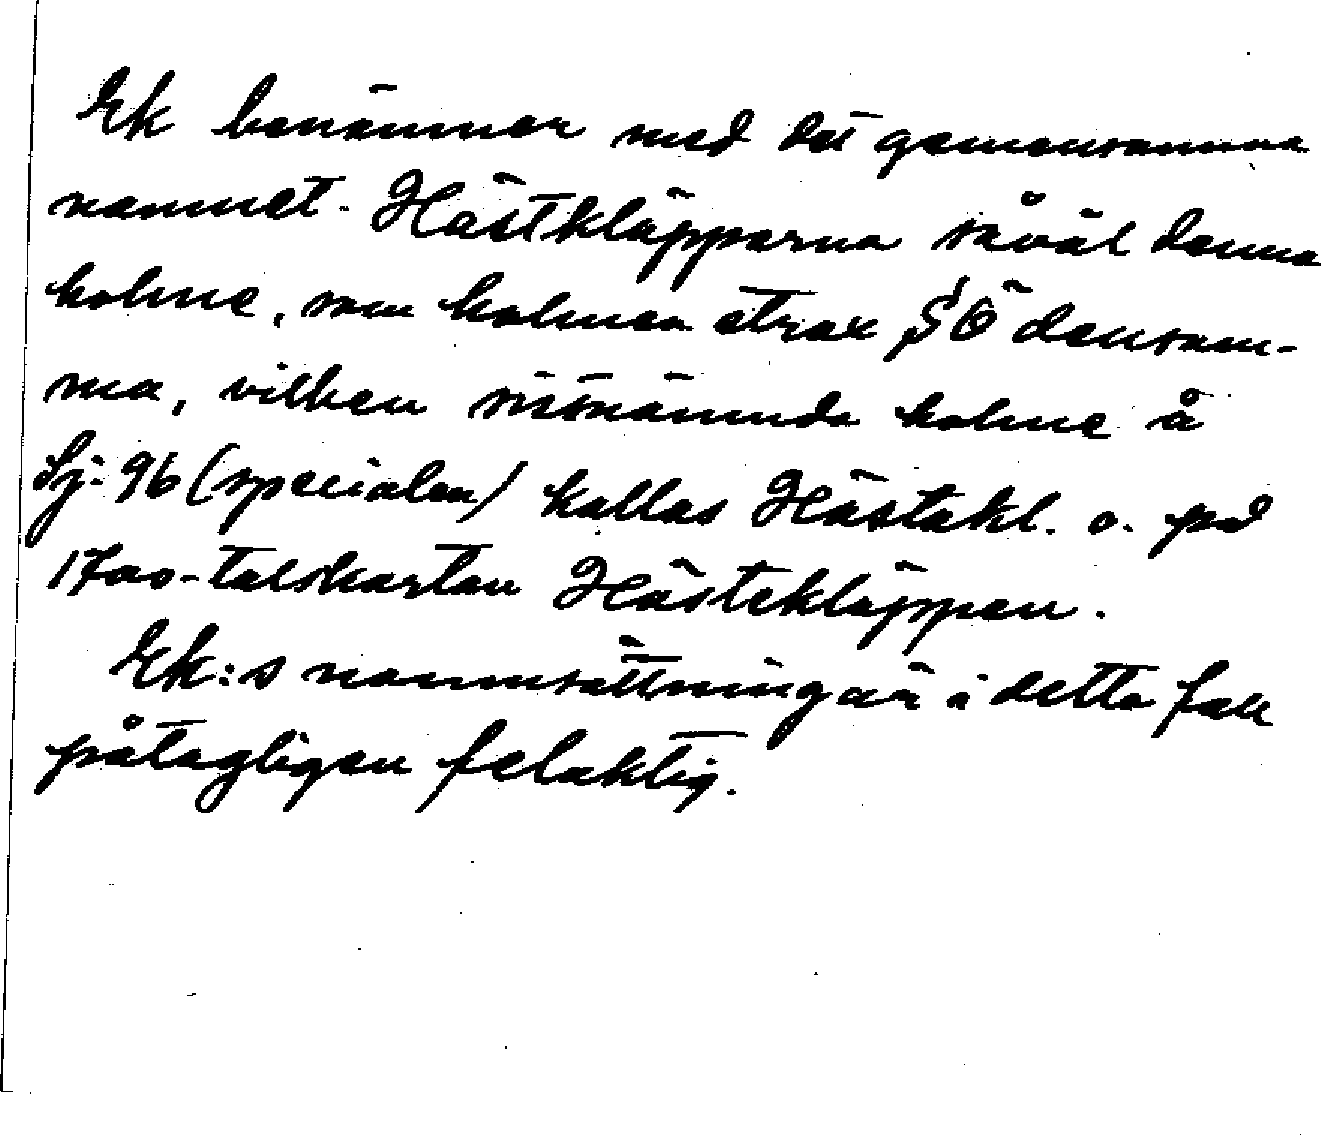 Ek benämner med det gemensamma
namnet Hästkläpparna såväl denna
holme, som holmen strax SÖ densam-
ma, vilken sistnämnda holme å
Sj. 96 (specialen) kallas Hästakl. o. på
1700-talskartan Hästekläppen.
Ek:s namnsättning är i detta fall
påtagligen felaktig.